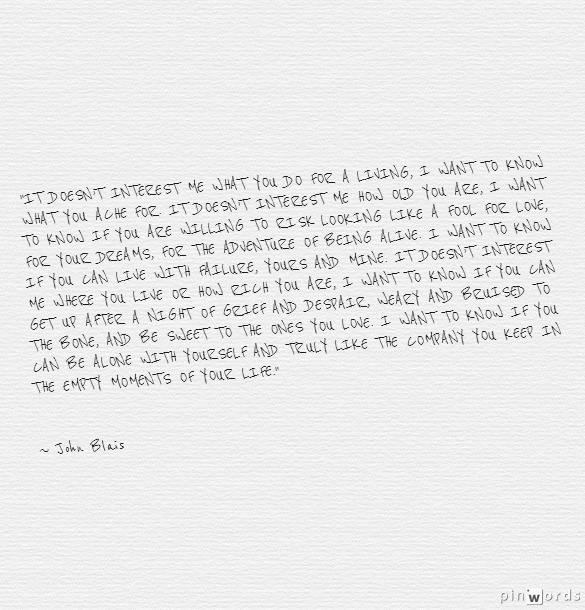 "IT DOESN'T INTEREST ME WHAT YOU DO FOR A LIVING, I WANT TO KNOW
WHAT YOU ACHE FOR. IT DOESN'T INTEREST ME HOW OLD YOU ARE, I WANT
TO KNOW IF YOU ARE WILLING TO RISK LOOKING LIKE A FOOL FOR LOVE,
FOR YOUR DREAMS, FOR THE ADVENTURE OF BEING ALIVE. I WANT TO KNOW
IF YOU CAN LIVE WITH FAILURE, YOURS AND MINE. IT DOESN'T INTEREST
ME WHERE YOU LIVE OR HOW RICH YOU ARE, I WANT TO KNOW IF YOU CAN
GET UP AFTER A NIGHT OF GRIEF AND DESPAIR, WEARY AND BRUISED TO
THE BONE, AND BE SWEET TO THE ONES YOU LOVE. I WANT TO KNOW IF YOU
CAN BE ALONE WITH YOURSELF AND TRULY LIKE THE COMPANY YOU KEEP IN
THE EMPTY MOMENTS OF YOUR LIFE."
~ John Blais
pinwords